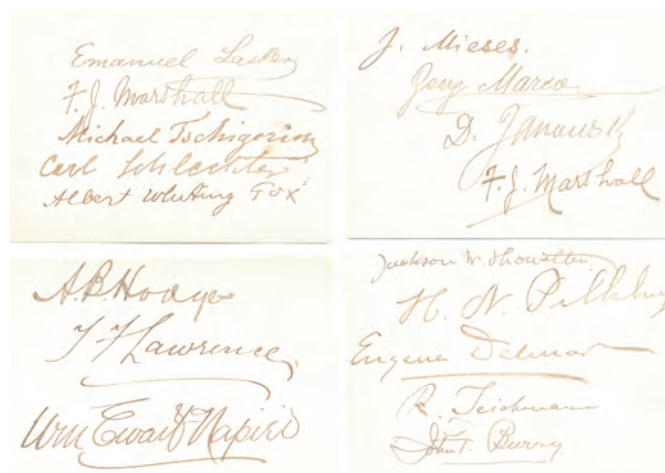 Emanuel Lasker
F. J. Marshall
Michael Tschigorin
Carl Schlechter
Albert Whiting Fox
J. Mieses.
Georg Marco
D. Janowski
F. J. Marshall
A. B. Hodges
T F Lawrence,
Wm Ewart Napier
Jackson W. Showalter.
H. N. Pillsbury
Eugene Delmar
R. Teichmann
John F. Barry.